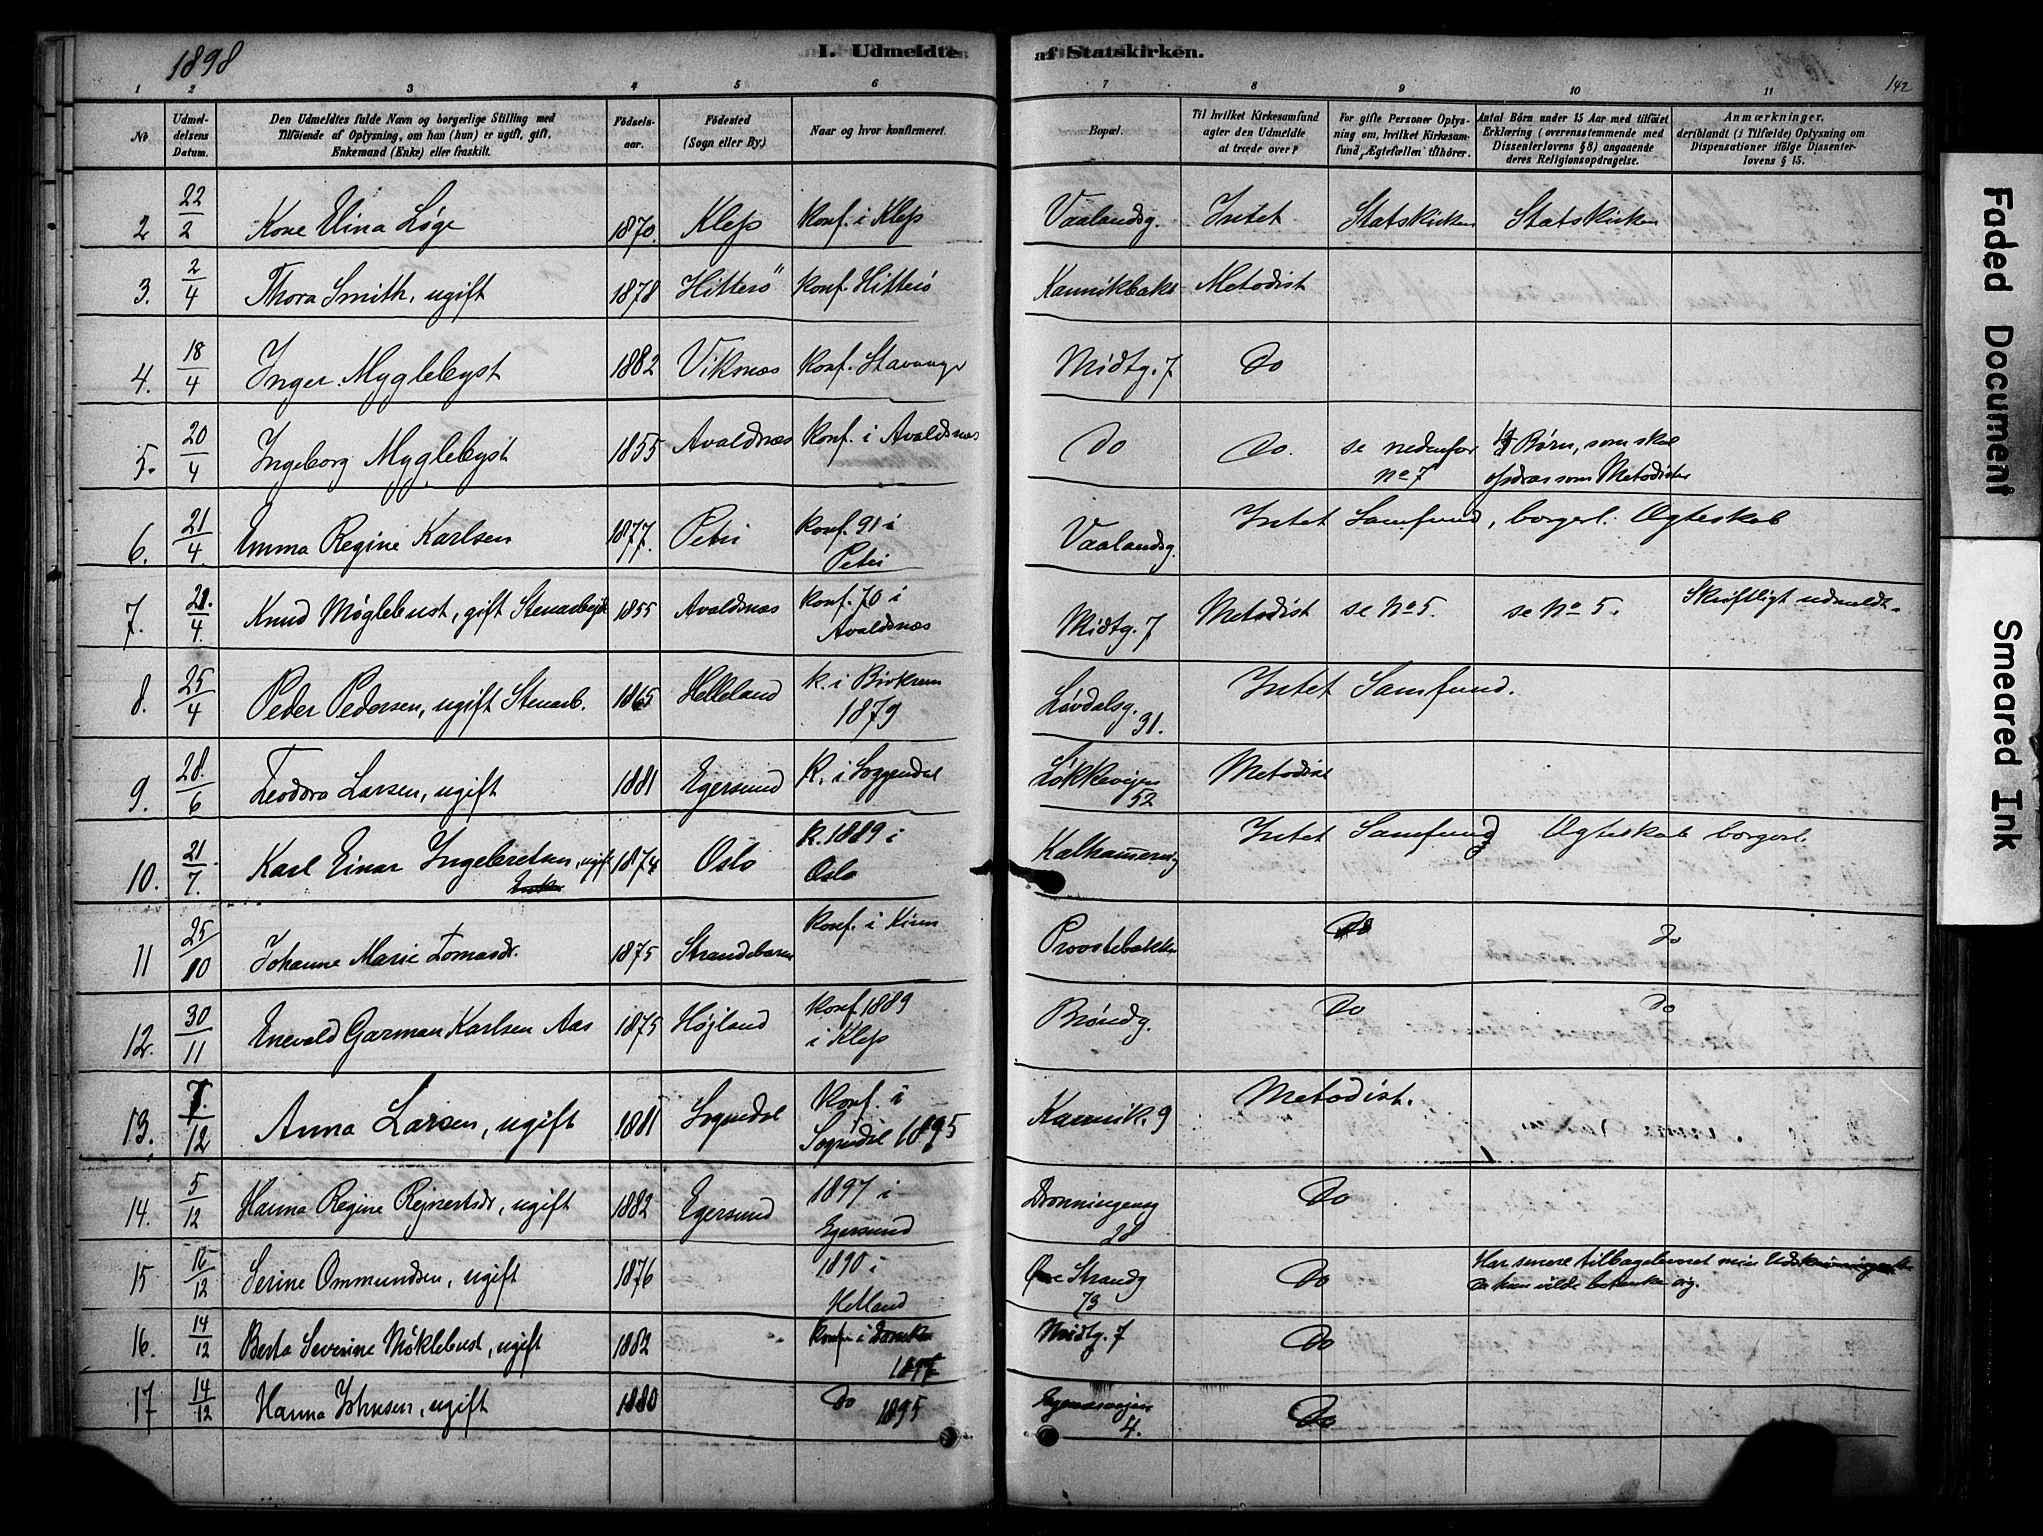 1898
I. Udmeldte af Statskirken.
142
1 2 3 4 5 6 7 8 9 10 11
No
Udmeldelsens Datum.
Den Udmeldtes fulde Navn og borgerlige Stilling med
Tilføiende af Oplysning, om han (hun) er ugift, gift,
Enkemand (Enke) eller fraskilt.
Fødselsaar.
Fødested
(Sogn eller By.)
Naar og hvor konfirmeret.
Bopæl.
Til hvilket Kirkesamfund
agter den Udmeldte
at træde over?
For gifte Personer Oplysning
om, hvilket Kirkesamfund
Ægtefællen tilhører.
Antal Børn under 15 Aar med tilføiet
Erklæring (overensstemmende med
Dissenterlovens § 8) angaaende
deres Religionsopdragelse.
Anmærkninger,
deriblandt (i Tilfælde) Oplysning om
Dispensationer ifølge Dissenterlovens
§ 15.
2 22/2 Kone Elina Løge 1870. Klep Konf. i Klep Vaalandsg. Intet Statskirken Statskirken
3. 2/4 Thora Smith, ugift 1878 Hitterö Konf. Hitterö Kannikbakk Metodist
4. 18/4 Inger Myglebyst 1882 Viknæs Konf. Stavanger Midtg. 7 Do
5. 20/4 Ingeborg Myglebyst 1855 Avaldsnæs Konf. i Avaldsnæs Do Do. se nedenfor No 7 4 Børn, som skal opdras som Metodister
6. 21/4 Emma Regine Karlsen 1877. Petri Konf. 91 i Petri Vaalandsg. Intet Samfund, borgerl. Ægteskab
7. 21/4 Knud Møglebust, gift Stenarbejd 1855 Avaldsnæs Konf. 70 i Avaldsnæs Midtg. 7 Metodist se No 5. se No 5. Skriftligt udmeldt.
8. 25/4 Peder Pedersen, ugift Stenarb. 1865 Helleland K. i Birkrem 1879 Løvdalsg. 31. Intet Samfund.
9. 28/6 Teodora Larsen, ugift 1881 Egersund K. i Soggendal Løkkevejen 52 Metodist
10. 21/7. Karl Einar Ingebretsen, ugift 1874 Oslo K. 1889 i Oslo Kalhammervg Intet Samfund Ægteskab borgerl.
11 25/10 Johanne Marie Tomasdr. 1875 Strandebarm Konf. i Kinn Provstebakken Do Do
12. 30/11 Enevald Garman Karlsen Aas 1875 Højland Konf 1889 i Klep Brøndg. Do Do
13. 1/12 Anna Larsen, ugift 1881 Sogndal Konf. i Sogndal 1895 Kannik. 9 Metodist.
14. 5/12 Hanna Regine Rejnertsdr, ugift 1882 Egersund 1897 i Egersund Dronningensg 28 Do
15 15/12 Serine Ommundsen, ugift 1876 1890 i Helland Øvre Strandg 73 Do Har senere tilbagekaldet min Udskrivning da hun vilde betænke sig.
16. 14/12 Berta Severine Møklebust, ugift 1882 Konf. i Domk 1897 Midtg. 7 Do
17 14/12 Hanna Johnsen, ugift 1880 Do 1895 Egenæsvejen 4. Do
Faded Document
Smeared Ink